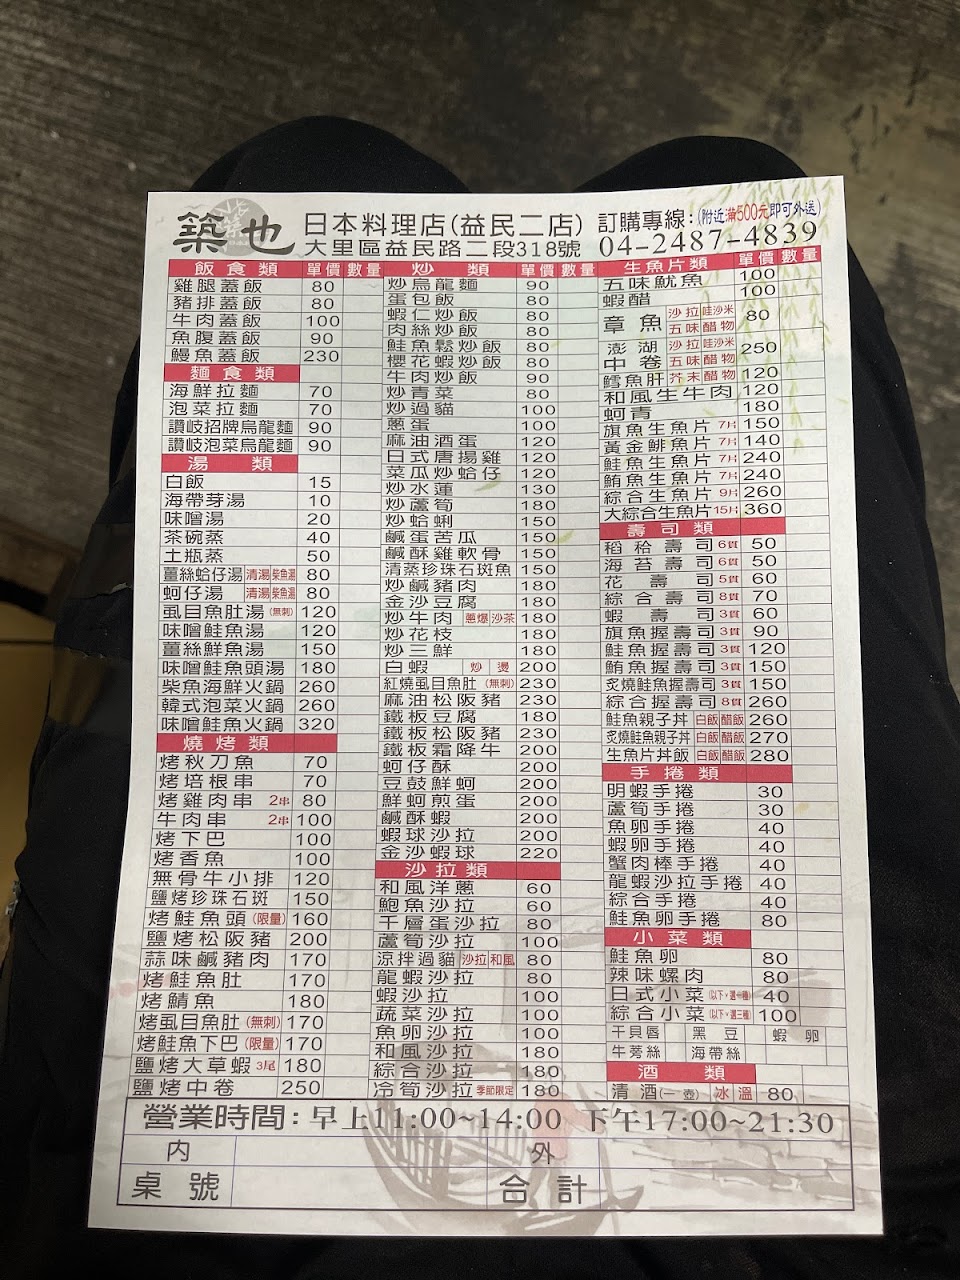 築也 日本料理店(益民二店)
大里區益民路二段318號
訂購專線:(附近滿500元即可外送)
04-2487-4839
飯食類 單價 數量
雞腿蓋飯 80
豬排蓋飯 80
牛肉蓋飯 100
魚腹蓋飯 90
鰻魚蓋飯 230
麵食類
海鮮拉麵 70
泡菜拉麵 70
讚岐招牌烏龍麵 90
讚岐泡菜烏龍麵 90
湯類
白飯 15
海帶芽湯 10
味噌湯 20
茶碗蒸 40
土瓶蒸 50
薑絲蛤仔湯 清湯 柴魚湯 80
蚵仔湯 清湯 柴魚湯 80
虱目魚肚湯(無刺) 120
味噌鮭魚湯 120
薑絲鮮魚湯 150
味噌鮭魚頭湯 180
柴魚海鮮火鍋 260
韓式泡菜火鍋 260
味噌鮭魚火鍋 320
燒烤類
烤秋刀魚 70
烤培根串 70
烤雞肉串 2串 80
牛肉串 2串 100
烤下巴 100
烤香魚 100
無骨牛小排 120
鹽烤珍珠石斑 150
烤鮭魚頭(限量) 160
鹽烤松阪豬 200
蒜味鹹豬肉 170
烤鮭魚肚 170
烤鯖魚 180
烤虱目魚肚(無刺) 170
烤鮭魚下巴(限量) 170
鹽烤大草蝦 3尾 180
鹽烤中卷 250
炒類 單價 數量
炒烏龍麵 90
蛋包飯 80
蝦仁炒飯 80
肉絲炒飯 80
鮭魚鬆炒飯 80
櫻花蝦炒飯 80
牛肉炒飯 90
炒青菜 80
炒過貓 100
蔥蛋 100
麻油酒蛋 120
日式唐揚雞 120
菜瓜炒蛤仔 120
炒水蓮 130
炒蘆筍 180
炒蛤蜊 150
鹹蛋苦瓜 150
鹹酥雞軟骨 150
清蒸珍珠石斑魚 150
炒鹹豬肉 180
金沙豆腐 180
炒牛肉 蔥爆 沙茶 180
炒花枝 180
炒三鮮 180
白蝦 炒 燙 200
紅燒虱目魚肚(無刺) 230
麻油松阪豬 230
鐵板豆腐 180
鐵板松阪豬 230
鐵板霜降牛 200
蚵仔酥 200
豆鼓鮮蚵 200
鮮蚵煎蛋 200
鹹酥蝦 200
蝦球沙拉 200
金沙蝦球 220
沙拉類
和風洋蔥 60
鮑魚沙拉 60
千層蛋沙拉 80
蘆筍沙拉 100
涼拌過貓 沙拉 和風 80
龍蝦沙拉 80
蝦沙拉 100
蔬菜沙拉 100
魚卵沙拉 100
和風沙拉 180
綜合沙拉 180
冷筍沙拉 季節限定 180
生魚片類 單價 數量
五味魷魚 100
蝦醋 100
章魚 沙拉 哇沙米 五味 醋物 80
澎湖中卷 沙拉 哇沙米 五味 醋物 250
鱈魚肝 芥末 醋物 120
和風生牛肉 120
蚵青 180
旗魚生魚片 7片 150
黃金鯡魚片 7片 140
鮭魚生魚片 7片 240
鮪魚生魚片 7片 240
綜合生魚片 9片 260
大綜合生魚片 15片 360
壽司類
稻秴壽司 6貫 50
海苔壽司 6貫 50
花壽司 5貫 60
綜合壽司 8貫 70
蝦壽司 3貫 60
旗魚握壽司 3貫 90
鮭魚握壽司 3貫 120
鮪魚握壽司 3貫 150
炙燒鮭魚握壽司 3貫 150
綜合握壽司 8貫 260
鮭魚親子丼 白飯 醋飯 260
炙燒鮭魚親子丼 白飯 醋飯 270
生魚片丼飯 白飯 醋飯 280
手捲類
明蝦手捲 30
蘆筍手捲 30
魚卵手捲 40
蝦卵手捲 40
蟹肉棒手捲 40
龍蝦沙拉手捲 40
綜合手捲 40
鮭魚卵手捲 80
小菜類
鮭魚卵 80
辣味螺肉 80
日式小菜(以下、選一種) 40
綜合小菜(以下、選三種) 100
干貝唇 黑豆 蝦卵
牛蒡絲 海帶絲
酒類
清酒(一壺) 冰 溫 80
營業時間:早上11:00~14:00 下午17:00~21:30
內 外
桌號 合計